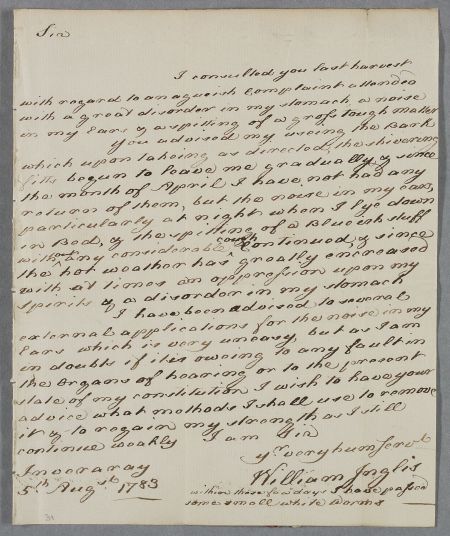 Sir
I consulted you last harvest
with regard to an agueish Complaint attended
with a great disorder in my stomach a noise
in my Ears & a spitting of a gross tough matter
You advised my useing the Bark
which upon takeing as directed, the shivering
fitts begun to leave me gradually & since
the month of April I have not had any
return of them, but the noise in my ears,
particularly at night when I lye down
in Bed, & the spitting of a Blueish stuff
without any considerable cough continued & since
the hot weather has greatly encreased
with at times an oppression upon my
spirits & a disorder in my stomach
I have been advised to several
external applications for the noise in my
Ears which is very uneasy, but as I am
in doubts if it is oweing to any fault in
the Organs of hearing or to the present
state of my constitution I wish to have your
advice what methods I shall use to remove
it & to regain my strength as I still
continue weakly I am Sir
yr very hum Servt
William Inglis
Inveraray
5th Augst 1783
within these few days I have passed
some small white Worms
31